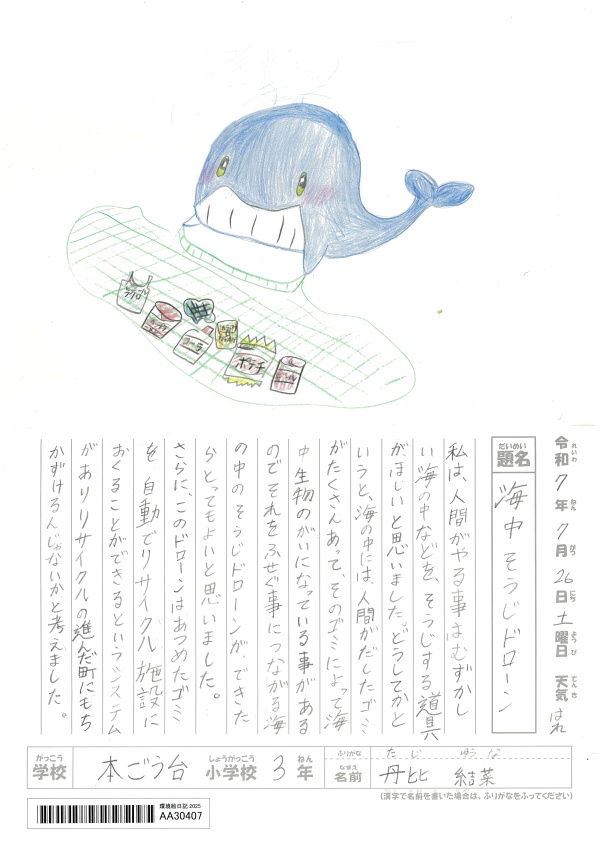 ポテチ
コーラ
ビール
令和7年7月26日土曜日 天気 はれ
れいわ ねん がつ にち ようび てんき
だいめい
題名
海中そうじドローン
私は、人間がやる事はむずかし
い海の中などを、そうじする道具
がほしいと思いました。どうしてかと
いうと、海の中には、人間がだしたゴミ
がたくさんあって、そのゴミによって海
中生物のがいになっている事がある
のでそれをふせぐ事につながる海
の中のそうじドローンが、できた
らとってもよいと思いました。
さらに、このドローンはあつめたゴミ
を自動でリサイクル施設に
おくることができるというシステム
がありリサイクルの進んだ町にもち
かずけるんじゃないかと考えました。
がっこう しょうがっこう ねん
学校 本ごう台 小学校 3年
ふりがな たじ ゆうな
なまえ
名前 丹比 結菜
(漢字で名前を書いた場合は、ふりがなをふってください)
環境絵日記 2025
AA30407